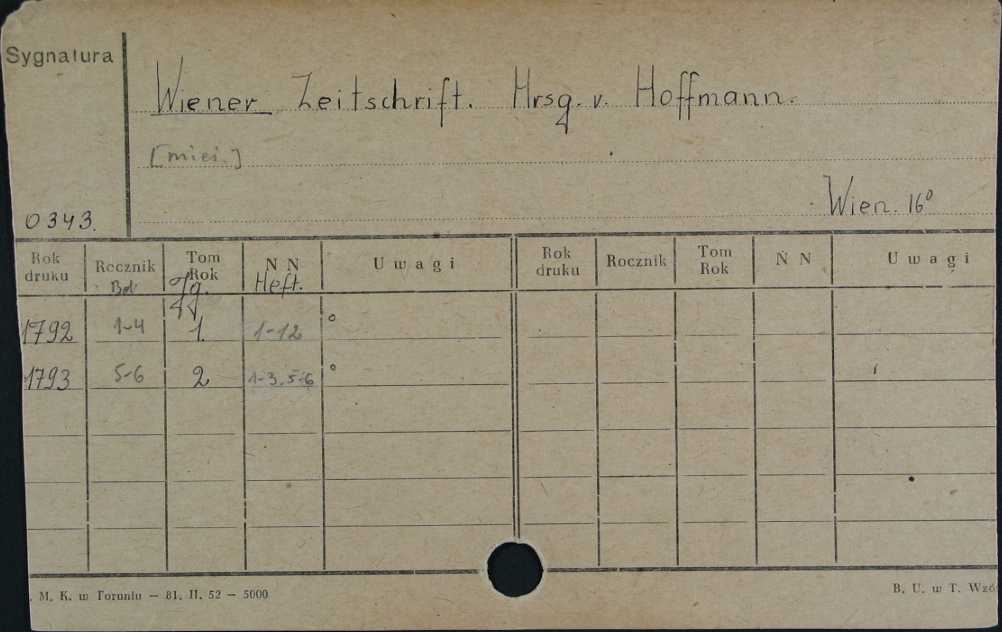 Sygnatura
Wiener Zeitschrift. Hrsg. v. Hoffmann.
[mies.]
Wien. 16⁰
0343.
Rok druku Rocznik Tom Rok N N Uwagi Rok druku Rocznik Tom Rok N N Uwagi
Bd. Jg. Heft.
1792 1-4 1. 1-12 °
1793 5-6 2 1-3, 5-6 °
. M. K. w Toruniu — 81. II. 52 — 5000 B. U. w T. Wzó